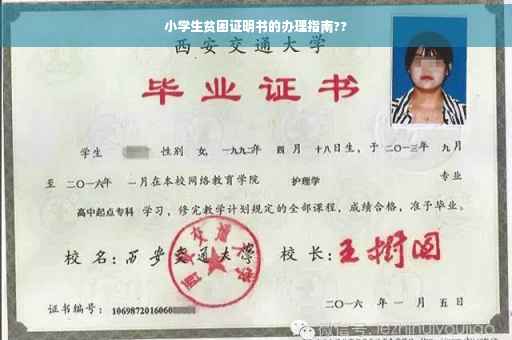 小学生贫困证明书的办理指南??
西安交通大学
毕业证书
学生 性别 女, 一九九二年 四 月 十八日生, 于 二〇一三年 九月
至 二〇一六年 一月在本校网络教育学院 护理学 专业
高中起点专科 学习, 修完教学计划规定的全部课程, 成绩合格, 准予毕业。
校 名: 西安交通大学 校 长: 王树国
西安交通大学
证书编号: 1069872016060
二〇一六 年 一 月 五 日
微信号: jiezhinuiyoujiao